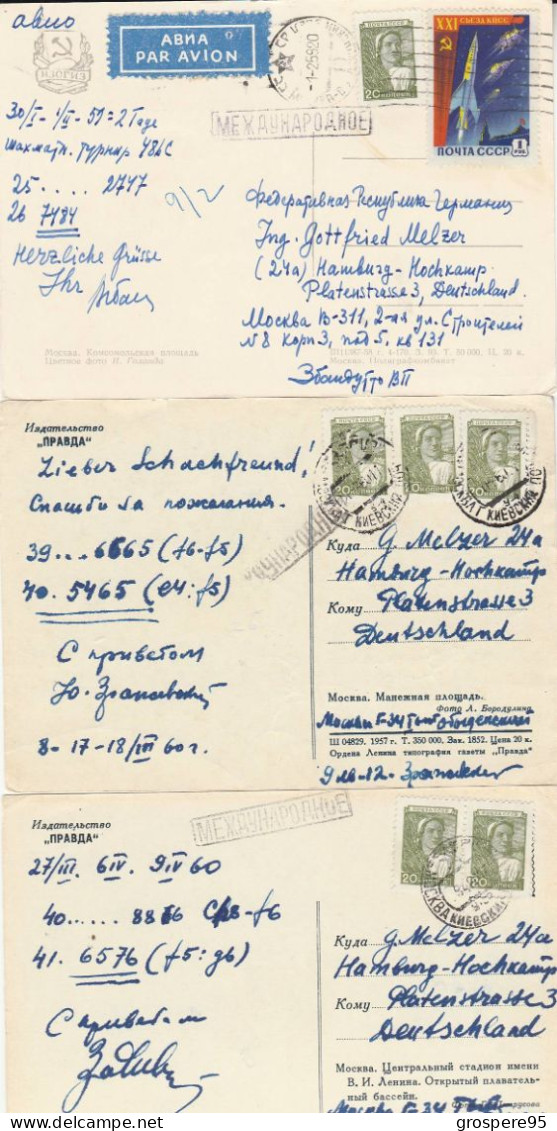 авио
АВИА
PAR AVION
ИЗОГИЗ
XXI СЪЕЗД КПСС
ПОЧТА СССР 1 РУБ
20
МЕЖДУНАРОДНОЕ
30/I - 1/II - 59 = 2 Tage
шахматн. турнир
25 .... 2747
26 7484
9/2
Herzliche Grüsse
Ihr
Федеративная Республика Германии
Ing. Gottfried Melzer
(24a) Hamburg - Hochkamp
Platenstrasse 3, Deutschland.
Москва В-311, 2-ая ул. Строителей
№ 8 корп 3, под 5. кв 131
Москва. Комсомольская площадь
Цветное фото Н.
Москва.
Издательство
„ПРАВДА“
Lieber Schachfreund!
Спасибо за пожелания.
39 ... 6665 (f6-f5)
40. 5465 (e4:f5)
С приветом
8 - 17 - 18/III 60 г.
20
КИЕВСКИЙ
Куда G. Melzer 24a
Hamburg - Hochkamp
Кому Platenstrasse 3
Deutschland
Москва. Манежная площадь.
Фото А. Бородулина
Москва Г-34
Ш 04829. 1957 г. Т. 350 000. Зак. 1852. Цена 20 к.
Ордена Ленина типография газеты „Правда“
Издательство
„ПРАВДА“
МЕЖДУНАРОДНОЕ
27/III 6/IV 9/IV 60
40 ...... 8866
41. 6576 (f5:g6)
С приветом
20
20
МОСКВА КИЕВСКИЙ
Куда G. Melzer 24a
Hamburg - Hochkamp
Кому Platenstrasse 3
Deutschland
Москва. Центральный стадион имени
В. И. Ленина. Открытый плаватель-
ный бассейн.
Москва Г-34
© grospere95